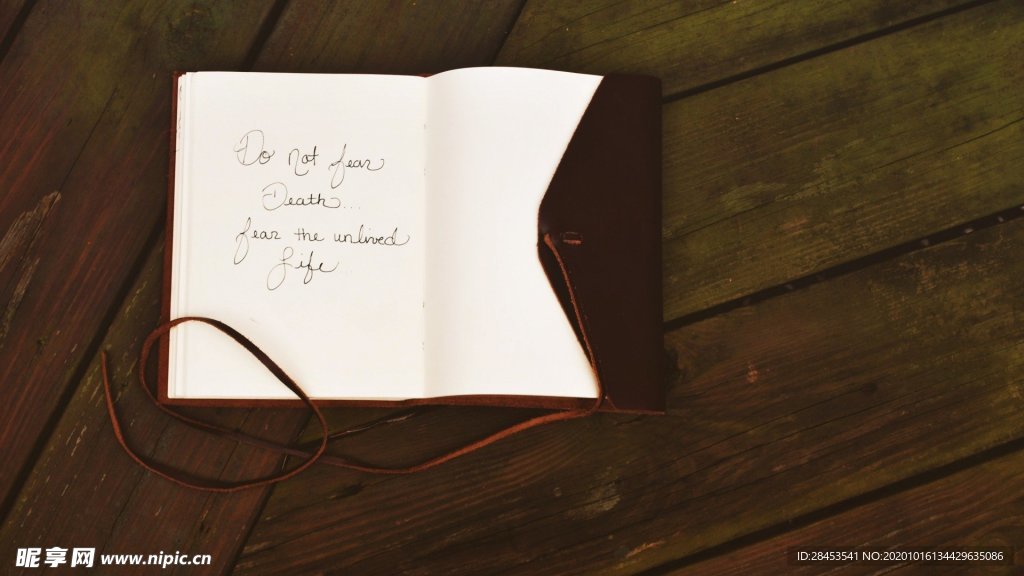 Do not fear
Death...
fear the unlived
Life...
昵享网 www.nipic.cn
ID:28453541 NO:20201016134429635086